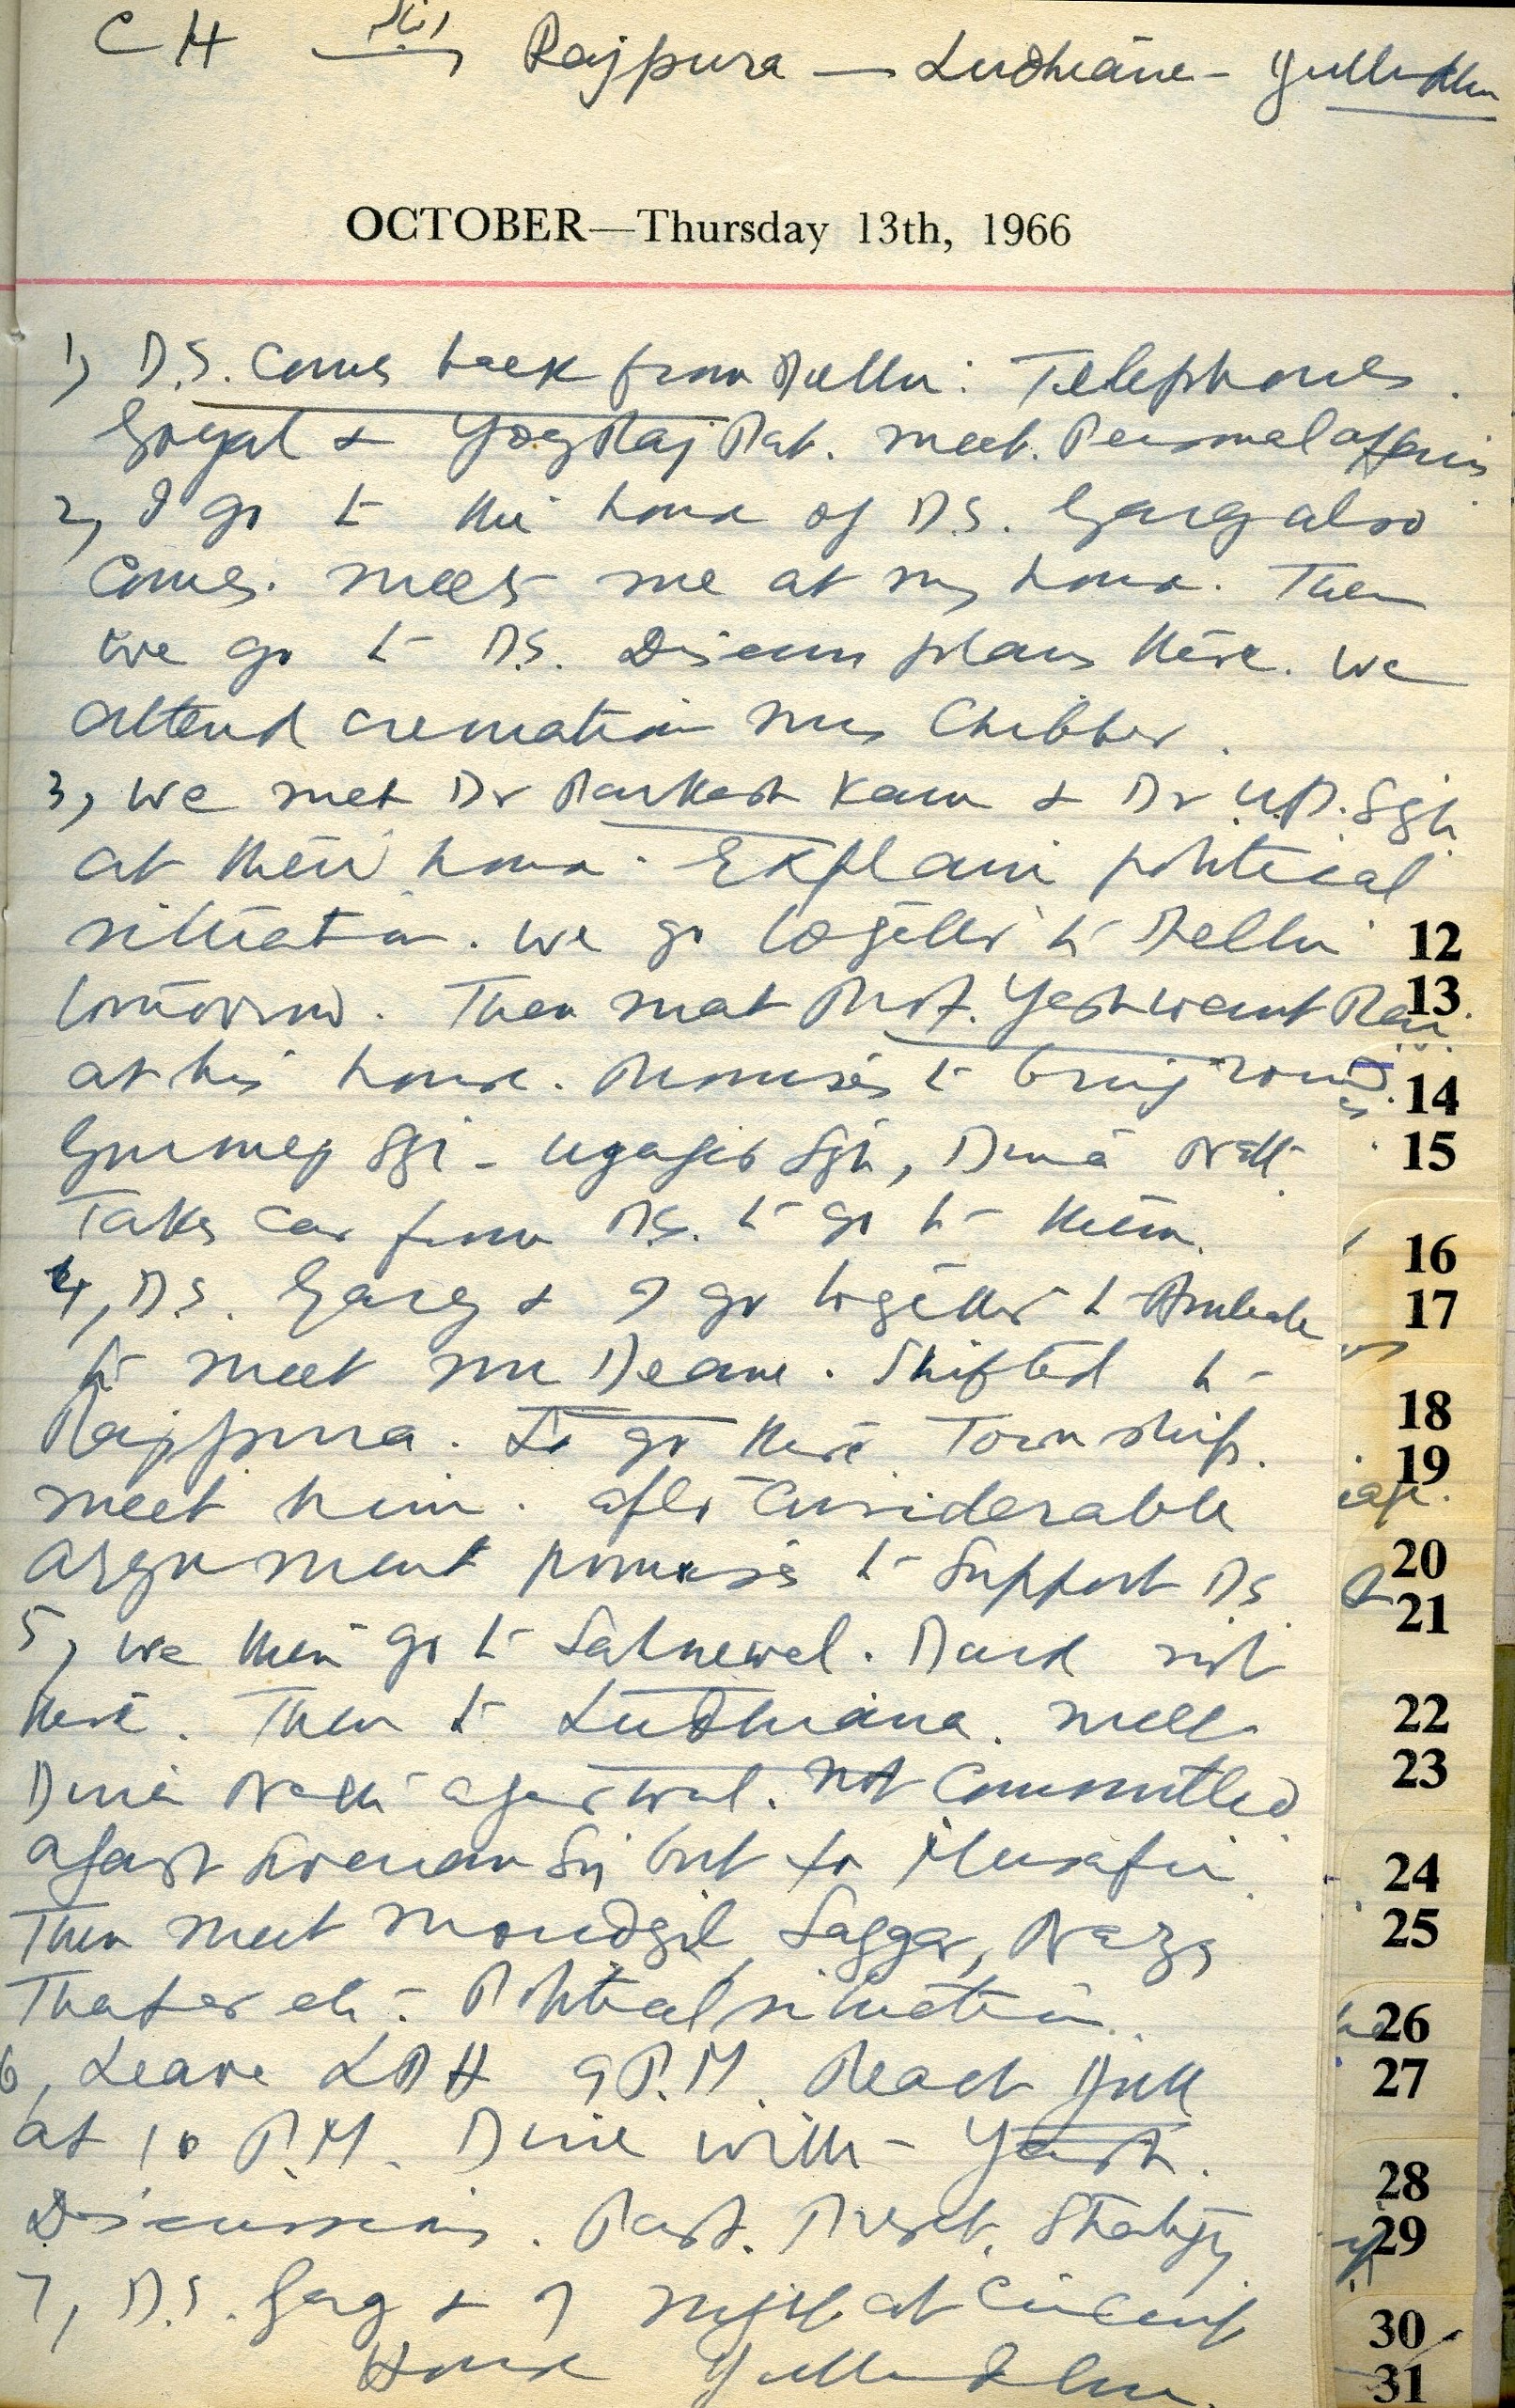 CH Rajpura — Ludhiana - Jullundur
OCTOBER—Thursday 13th, 1966
1, D.S. comes back from Delhi: Telephones.
Goyal & Yog Raj meet. Personal affairs
2, I go to the house of D.S. Garg also
comes. meets me at my house. Then
we go to D.S. Discuss plans there. we
attend cremation Mrs Chibber.
3, we met Dr Parkash Kaur & Dr U.P. Sgh
at their house. Explain political
situation. we go together to Delhi
tomorrow. Then meet Prof. Yashwant Rai
at his house. Promises to bring round
Gurmej Sgh - Ujagar Sgh, Dina Nath
Takes car from D.S. to go to them.
4, D.S. Garg & I go together to Ambala
to meet Mr Deane. Shifted to
Rajpura. So go there Township.
meet him. after considerable
argument promises to support D.S.
5, we then go to Sahnewal. Dard not
there. Then to Ludhiana. meet
Dina Nath Agarwal. not committed
agast but to Musafir.
Then meet Moudgil, Saggar,
Thapar etc - Political situation.
6, Leave LDH 9 P.M. Reach Jull
at 10 P.M. Dine with Yash.
Discussions. Past. Present. Strategy
7, D.S. Garg & I night at Circuit
House Jullundur.
12
13
14
15
16
17
18
19
20
21
22
23
24
25
26
27
28
29
30
31